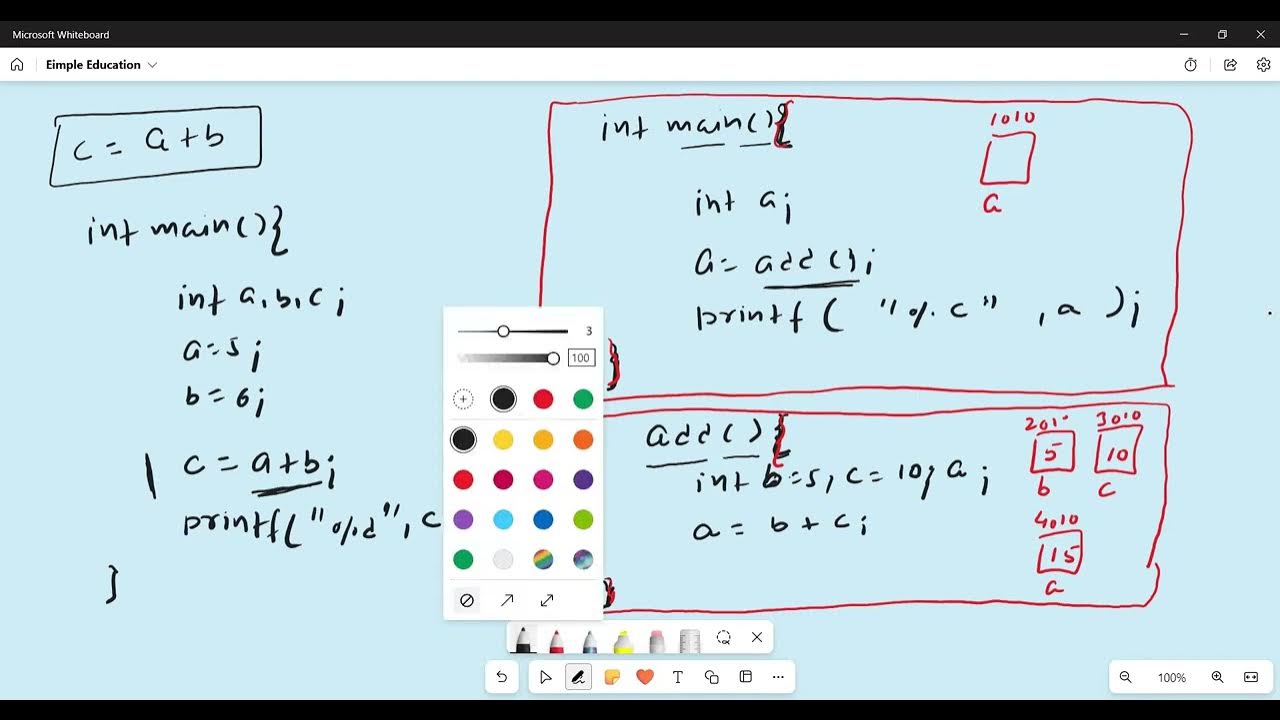 Microsoft Whiteboard
Eimple Education
c = a+b
int main(){
int a,b,c;
a=5;
b=6;
c = a+b;
printf("%d", c
}
int main(){
int a;
a= add();
printf( "%c" , a );
}
1010
a
3
100
add(){
int b=5, c=10, a;
a = b + c;
}
3010
5
10
b
c
4010
15
a
100%